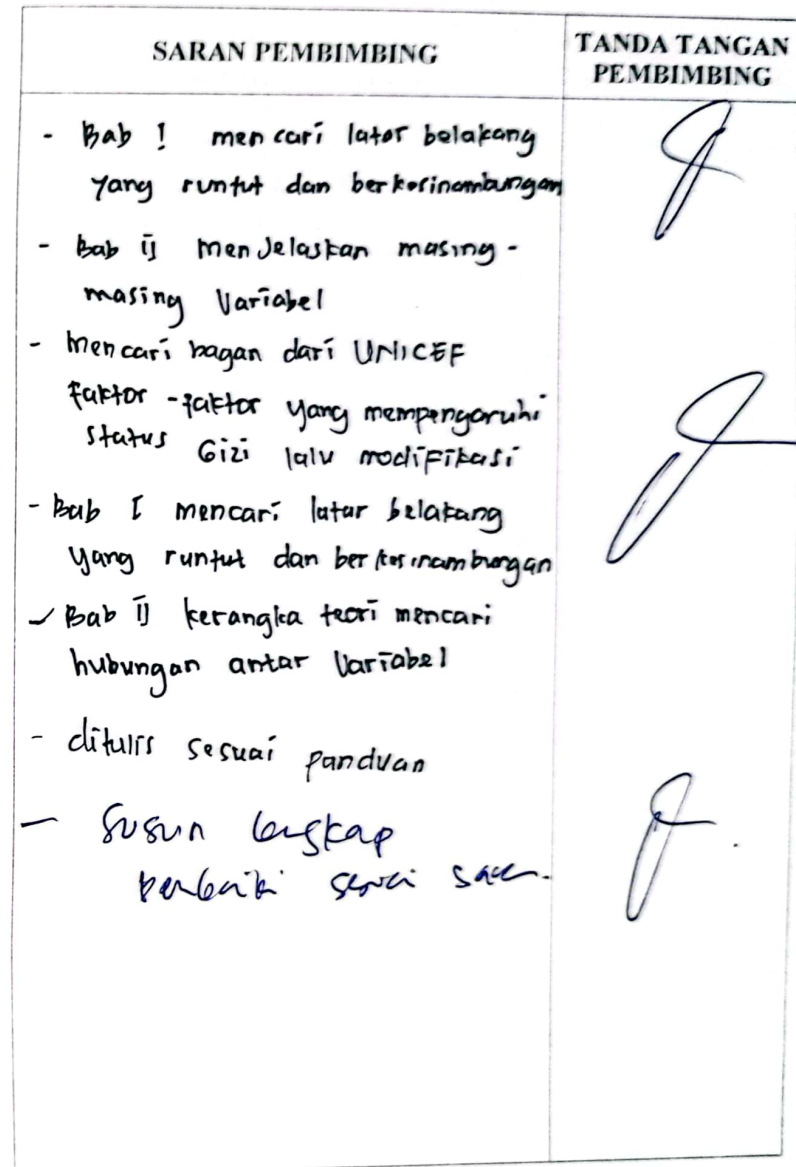 SARAN PEMBIMBING
TANDA TANGAN
PEMBIMBING
- Bab I mencari lator belakang
yang runtut dan berkesinambungan
- Bab II menjelaskan masing-
masing Variabel
- Mencari bagan dari UNICEF
faktor-faktor yang mempengaruhi
status Gizi lalu modifikasi
- Bab I mencari latar belakang
yang runtut dan berkesinambungan
- Bab II kerangka teori mencari
hubungan antar Variabel
- ditulis sesuai panduan
- Susun lengkap
perbaiki sesuai saran.